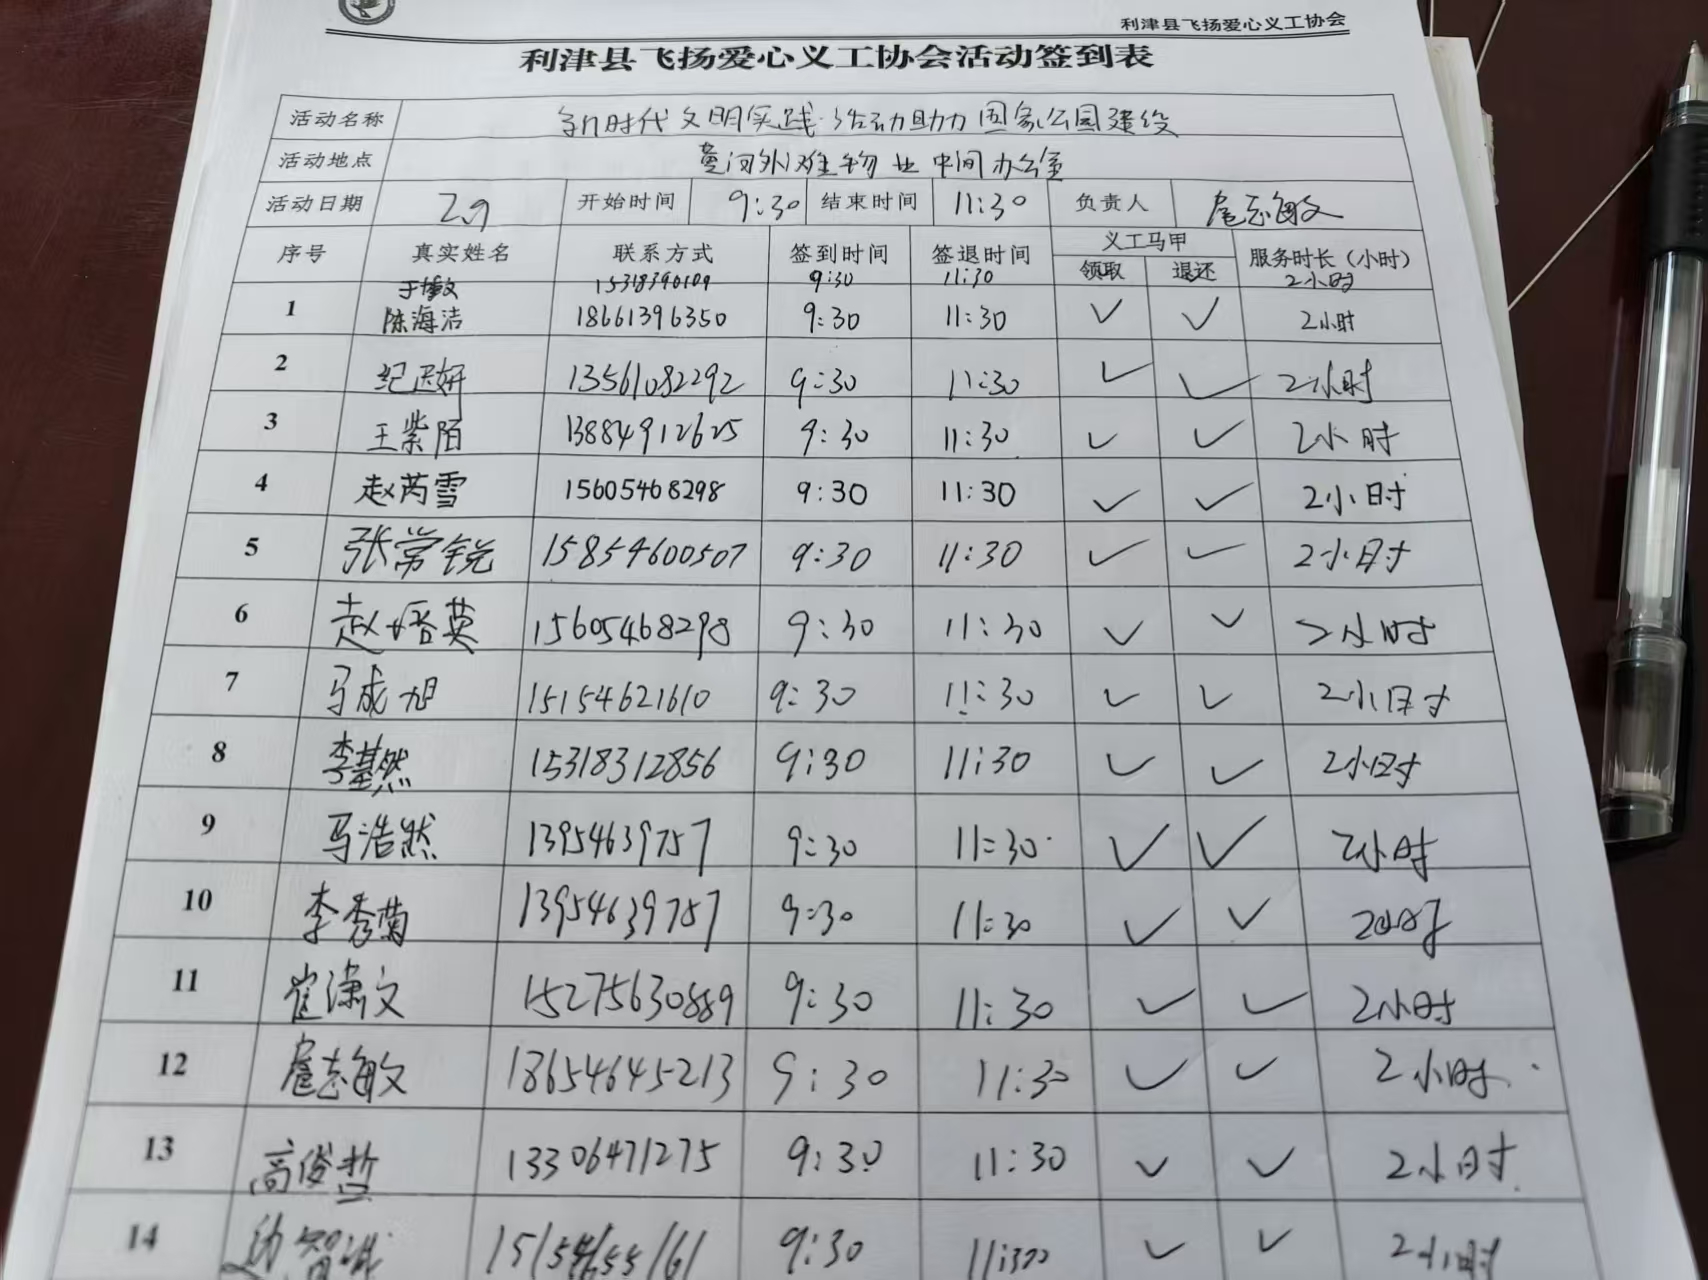 利津县飞扬爱心义工协会
利津县飞扬爱心义工协会活动签到表
活动名称 新时代文明实践·活动助力国家公园建设
活动地点 黄河外滩物业中间办公室
活动日期 2.9 开始时间 9:30 结束时间 11:30 负责人 扈志敏
序号 真实姓名 联系方式 签到时间 签退时间 义工马甲 服务时长（小时）
领取 退还
15318390109 9:30 11:30 2小时
1 陈海洁 18661396350 9:30 11:30 ✓ ✓ 2小时
2 纪妍 13561082292 9:30 11:30 ✓ ✓ 2小时
3 王紫陌 13884912625 9:30 11:30 ✓ ✓ 2小时
4 赵芮雪 15605468298 9:30 11:30 ✓ ✓ 2小时
5 张常锐 15854600507 9:30 11:30 ✓ ✓ 2小时
6 赵培英 15605468298 9:30 11:30 ✓ ✓ 2小时
7 马成旭 15154621610 9:30 11:30 ✓ ✓ 2小时
8 李基然 15318312856 9:30 11:30 ✓ ✓ 2小时
9 马浩然 13954639757 9:30 11:30 ✓ ✓ 2小时
10 李秀菊 13954639757 9:30 11:30 ✓ ✓ 2小时
11 崔潇文 15275630889 9:30 11:30 ✓ ✓ 2小时
12 扈志敏 18654645213 9:30 11:30 ✓ ✓ 2小时
13 高俊哲 13306471275 9:30 11:30 ✓ ✓ 2小时
14 9:30 11:30 ✓ ✓ 2小时